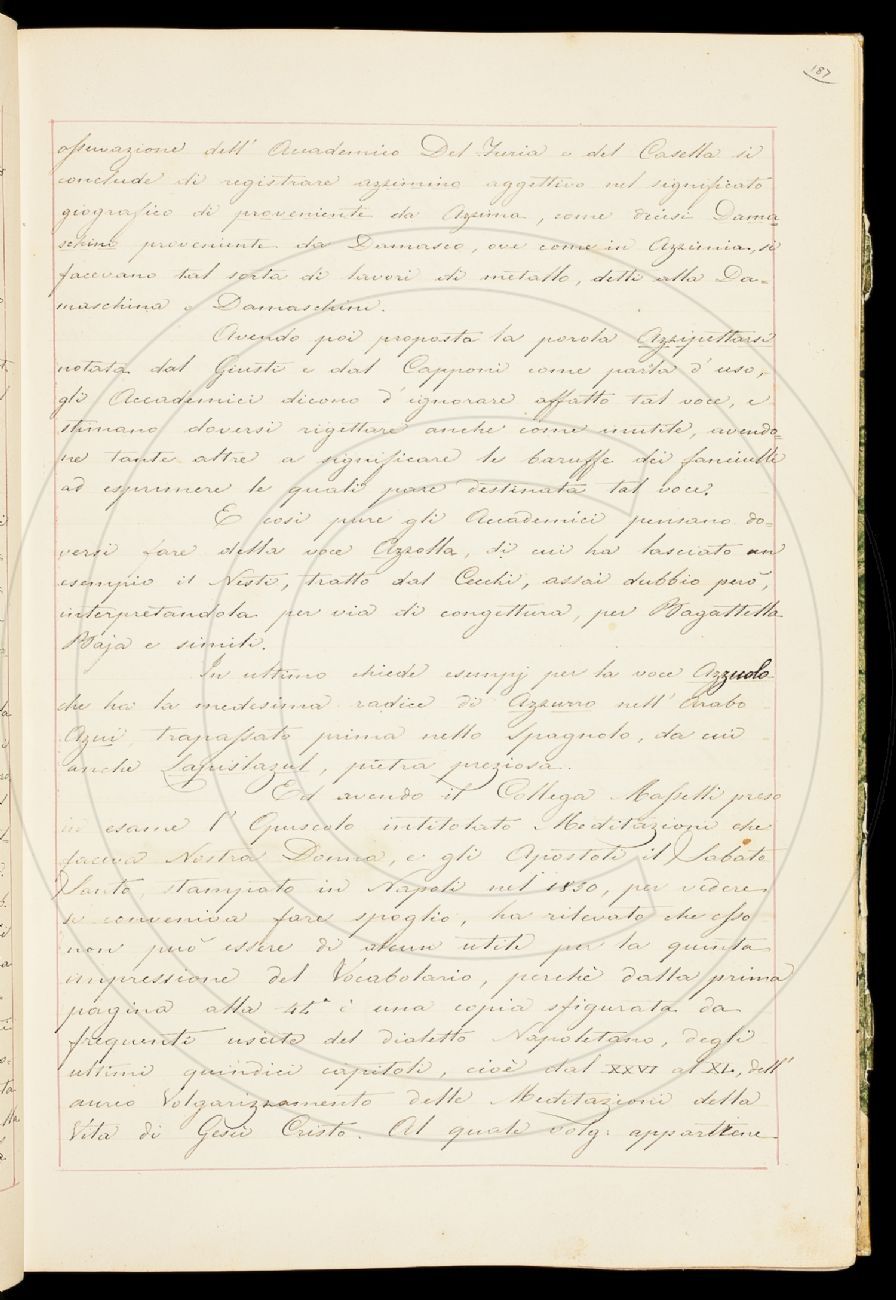 187
osservazione dell' Accademico Del Furia e del Casella si
conclude di registrare azzimino aggettivo nel significato
giografico di proveniente da Azzima, come dicesi Dama
schino proveniente da Damasco, ove come in Azzimia, si
facevano tal sorta di lavori di metallo, detti alla Da=
maschina e Damaschini.
Avendo poi proposta la parola Azzipettarsi
notata dal Giusti e dal Capponi come parla d' uso,
gli Accademici dicono d' ignorare affatto tal voce, e
stimano doversi rigettare anche come inutile, avendo=
ne tante altre a significare le baruffe dei fanciulli
ad esprimere le quali pare destinata tal voce.
E così pure gli Accademici pensano do=
versi fare della voce Azzolla, di cui ha lasciato un
esempio il Nesti, tratto dal Cecchi, assai dubbio però,
interpretandola per via di congettura, per Bagattella
Baja e simili.
In ultimo chiede esempj per la voce Azzuolo
che ha la medesima radice di Azzurro nell' Arabo
Azui, trapassato prima nello Spagnolo, da cui
anche Lapislazul, pietra preziosa.
Ed avendo il Collega Masselli preso
in esame l' Opuscolo intitolato Meditazioni che
faceva Nostra Donna, e gli Apostoli il Sabato
Santo, stampato in Napoli nel 1850, per vedere
se conveniva fare spoglio, ha rilevato che esso
non può essere di alcun utile per la quinta
impressione del Vocabolario, perchè dalla prima
pagina alla 44ª è una copia sfigurata da
frequenti uscite del dialetto Napoletano, degli
ultimi quindici capitoli, cioè dal XXVI al XL, dell'
aureo Volgarizzamento delle Meditazioni della
Vita di Gesù Cristo. Al quale volg: appartiene